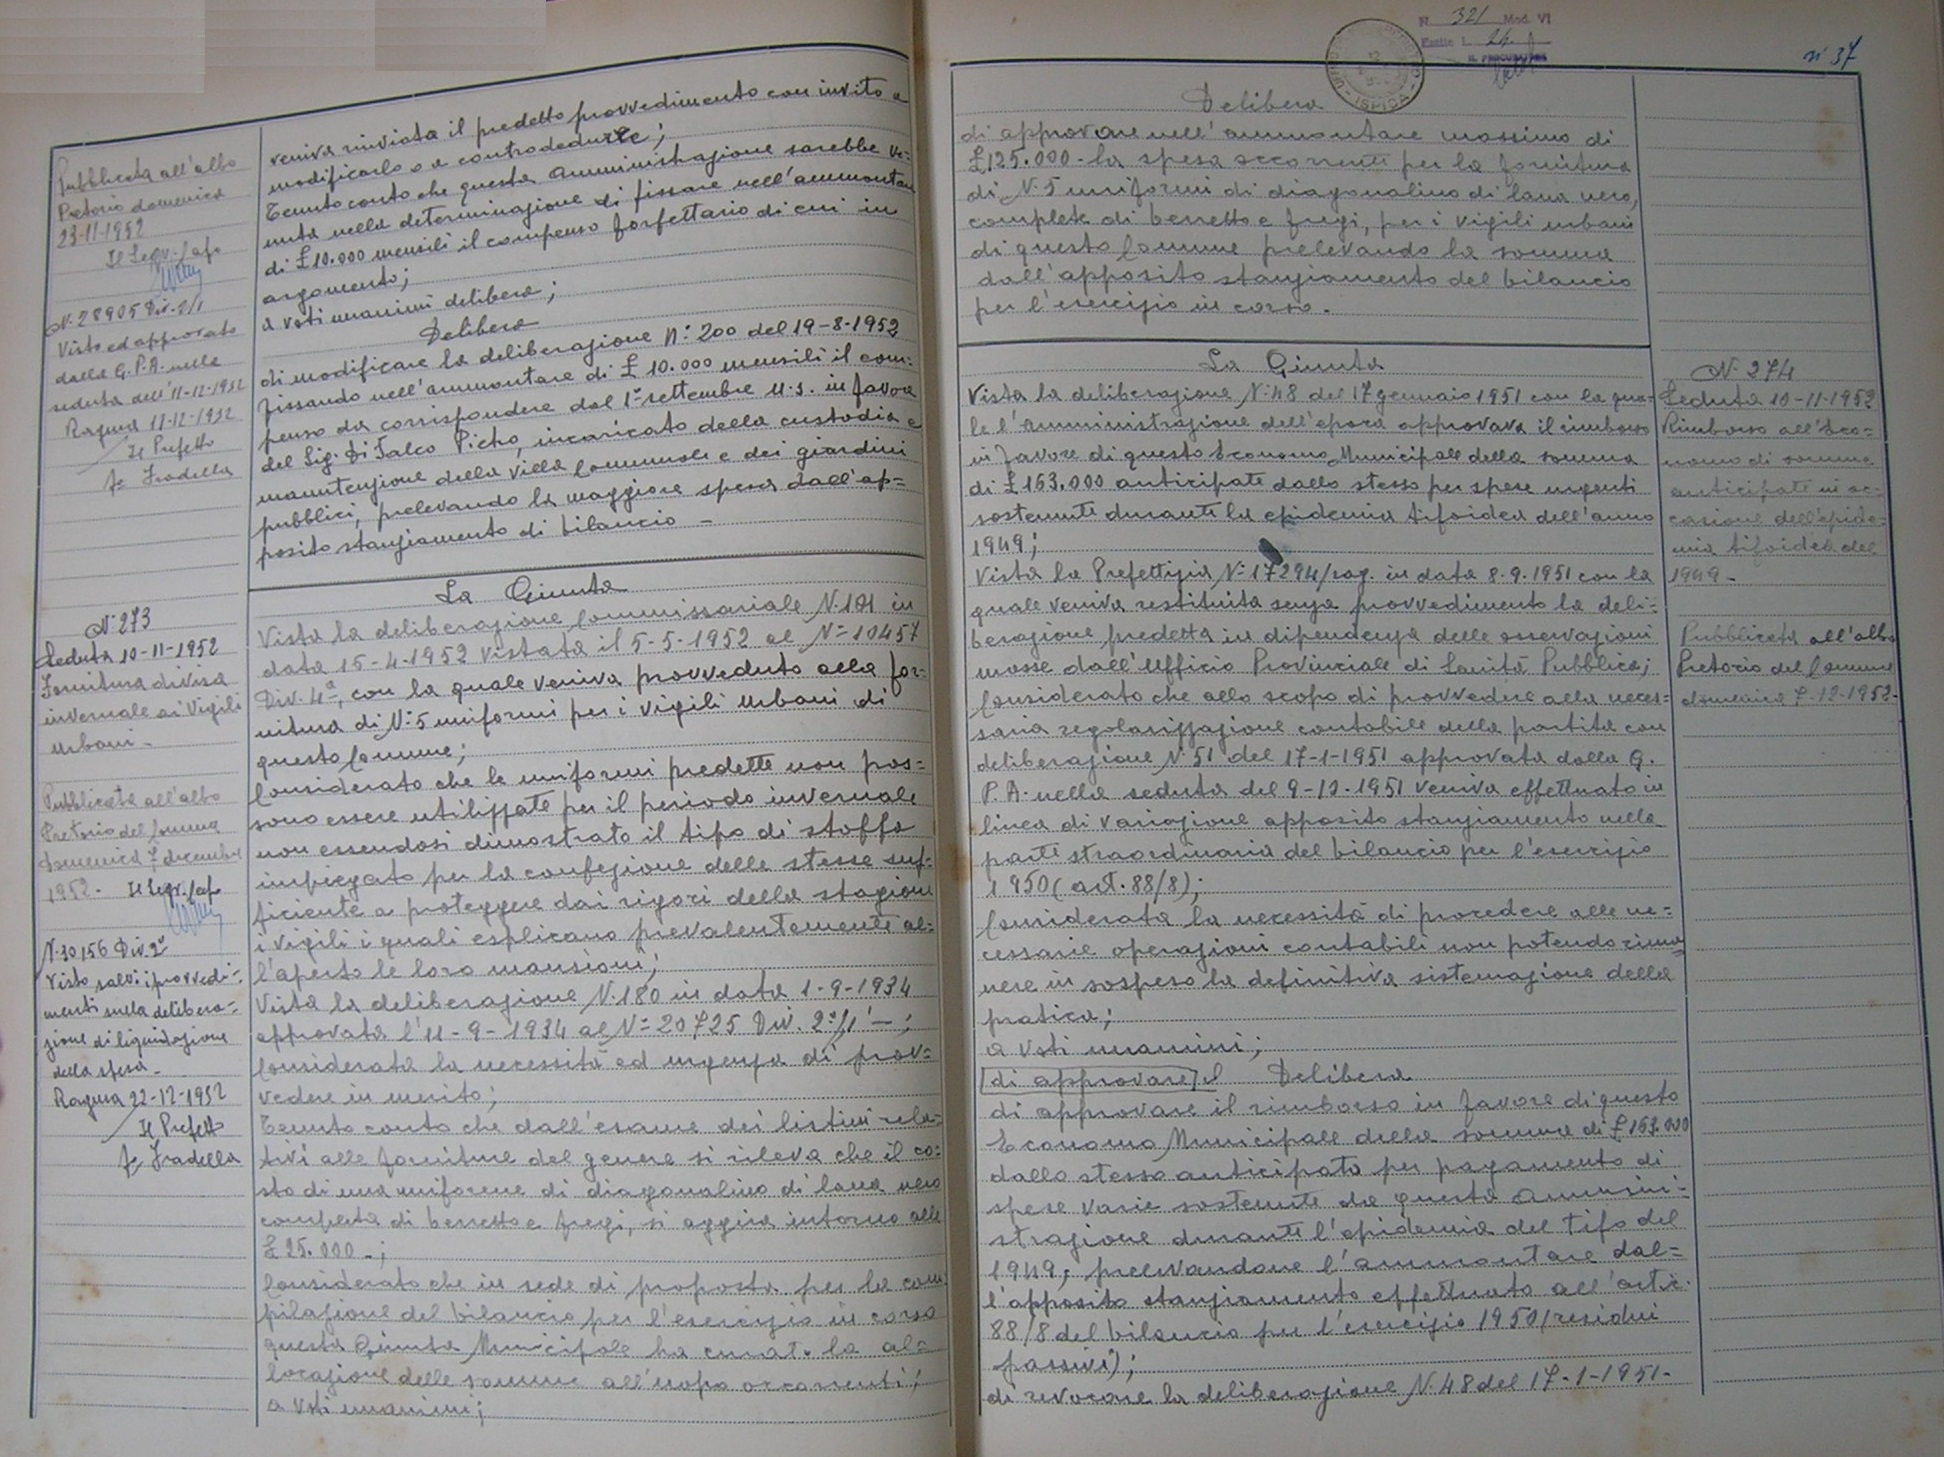 Pubblicata all'albo
Pretorio domenica
23-11-1952
Il Segr. Capo
N. 28905 Div. 2/1
Visto ed approvato
dalla G.P.A. nella
seduta dell'11-12-1952
Ragusa 11-12-1952
Il Prefetto
Fradella
N° 273
Seduta 10-11-1952
Fornitura divisa
invernale ai Vigili
Urbani -
Pubblicata all'albo
Pretorio del Comune
domenica 7 dicembre
1952 - Il Segr. Capo
N. 30156 Div. 2ª
Visto salvi i provvedi-
menti sulla delibera=
zione di liquidazione
della spesa -
Ragusa 22-12-1952
Il Prefetto
Fradella
veniva rinviata il predetto provvedimento con invito a
modificarlo o a controdedurre;
Tenuto conto che questa Amministrazione sarebbe ve=
nuta nella determinazione di fissare nell'ammontare
di £ 10.000 mensili il compenso forfettario di cui in
argomento;
a voti unanimi delibera;
Delibera
di modificare la deliberazione N° 200 del 19-8-1952
fissando nell'ammontare di £ 10.000 mensili il com=
penso da corrispondere dal 1° settembre u.s. in favore
del Sig. Di Falco Picho, incaricato della custodia e
manutenzione della Villa Comunale e dei giardini
pubblici, prelevando la maggiore spesa dall'ap=
posito stanziamento di bilancio -
La Giunta
Vista la deliberazione Commissariale N. 101 in
data 15-4-1952 vistata il 5-5-1952 al N= 10457
Div. 4ª, con la quale veniva provveduto alla for=
nitura di N° 5 uniformi per i Vigili Urbani di
questo Comune;
Considerato che le uniformi predette non pos=
sono essere utilizzate per il periodo invernale
non essendosi dimostrato il tipo di stoffa
impiegato per la confezione delle stesse suf=
ficiente a proteggere dai rigori della stagione
i vigili i quali esplicano prevalentemente al=
l'aperto le loro mansioni;
Vista la deliberazione N. 180 in data 1-9-1934
approvata l'11-9-1934 al N= 20725 Div. 2ª/1 -;
Considerata la necessità ed urgenza di prov=
vedere in merito;
Tenuto conto che dall'esame dei listini rela=
tivi alle forniture del genere si rileva che il co=
sto di una uniforme di diagonalino di lana nero
completa di berretto e fregi, si aggira intorno alle
£ 25.000 -;
Considerato che in sede di proposta per la com
pilazione del bilancio per l'esercizio in corso
questa Giunta Municipale ha curat. la al=
locazione delle somme all'uopo occorrenti;
a voti unanimi;
N. 321 Mod. VI
ISPICA
n° 37
Delibera
di approvare nell'ammontare massimo di
£ 125.000 - la spesa occorrente per la fornitura
di N. 5 uniformi di diagonalino di lana nero,
complete di berretto e fregi, per i vigili urbani
di questo Comune prelevando la somma
dall'apposito stanziamento del bilancio
per l'esercizio in corso -
La Giunta
Vista la deliberazione N. 48 del 17 gennaio 1951 con la qua-
le l'Amministrazione dell'epoca approvava il rimborso
in favore di questo Economo Municipale della somma
di £ 163.000 anticipate dallo stesso per spese urgenti
sostenute durante la epidemia tifoidea dell'anno
1949;
Vista la Prefettizia N. 17294/rag. in data 8.9.1951 con la
quale veniva restituita senza provvedimento la deli=
berazione predetta in dipendenza delle osservazioni
mosse dall'Ufficio Provinciale di Sanità Pubblica;
Considerato che allo scopo di provvedere alla neces=
saria regolarizzazione contabile della partita con
deliberazione N. 51 del 17-1-1951 approvata dalla G.
P.A. nella seduta del 9-12-1951 veniva effettuato in
linea di variazione apposito stanziamento nella
parte straordinaria del bilancio per l'esercizio
1950 (art. 88/8);
Considerata la necessità di procedere alle ne=
cessarie operazioni contabili non potendo rima
nere in sospeso la definitiva sistemazione della
pratica;
a voti unanimi;
di approvare il Delibera
di approvare il rimborso in favore di questo
Economo Municipale della somma di £ 163.000
dallo stesso anticipata per pagamento di
spese varie sostenute da questa Ammini=
strazione durante l'epidemia del tifo del
1949; prelevandone l'ammontare dal=
l'apposito stanziamento effettuato all'artic.
88/8 del bilancio per l'esercizio 1950 (residui
passivi);
di revocare la deliberazione N. 48 del 17-1-1951.
N. 274
Seduta 10-11-1952
Rimborso all'Eco-
nomo di somme
anticipate in oc-
casione dell'epide-
mia tifoidea del
1949 -
Pubblicata all'albo
Pretorio del Comune
domenica 7-12-1952.